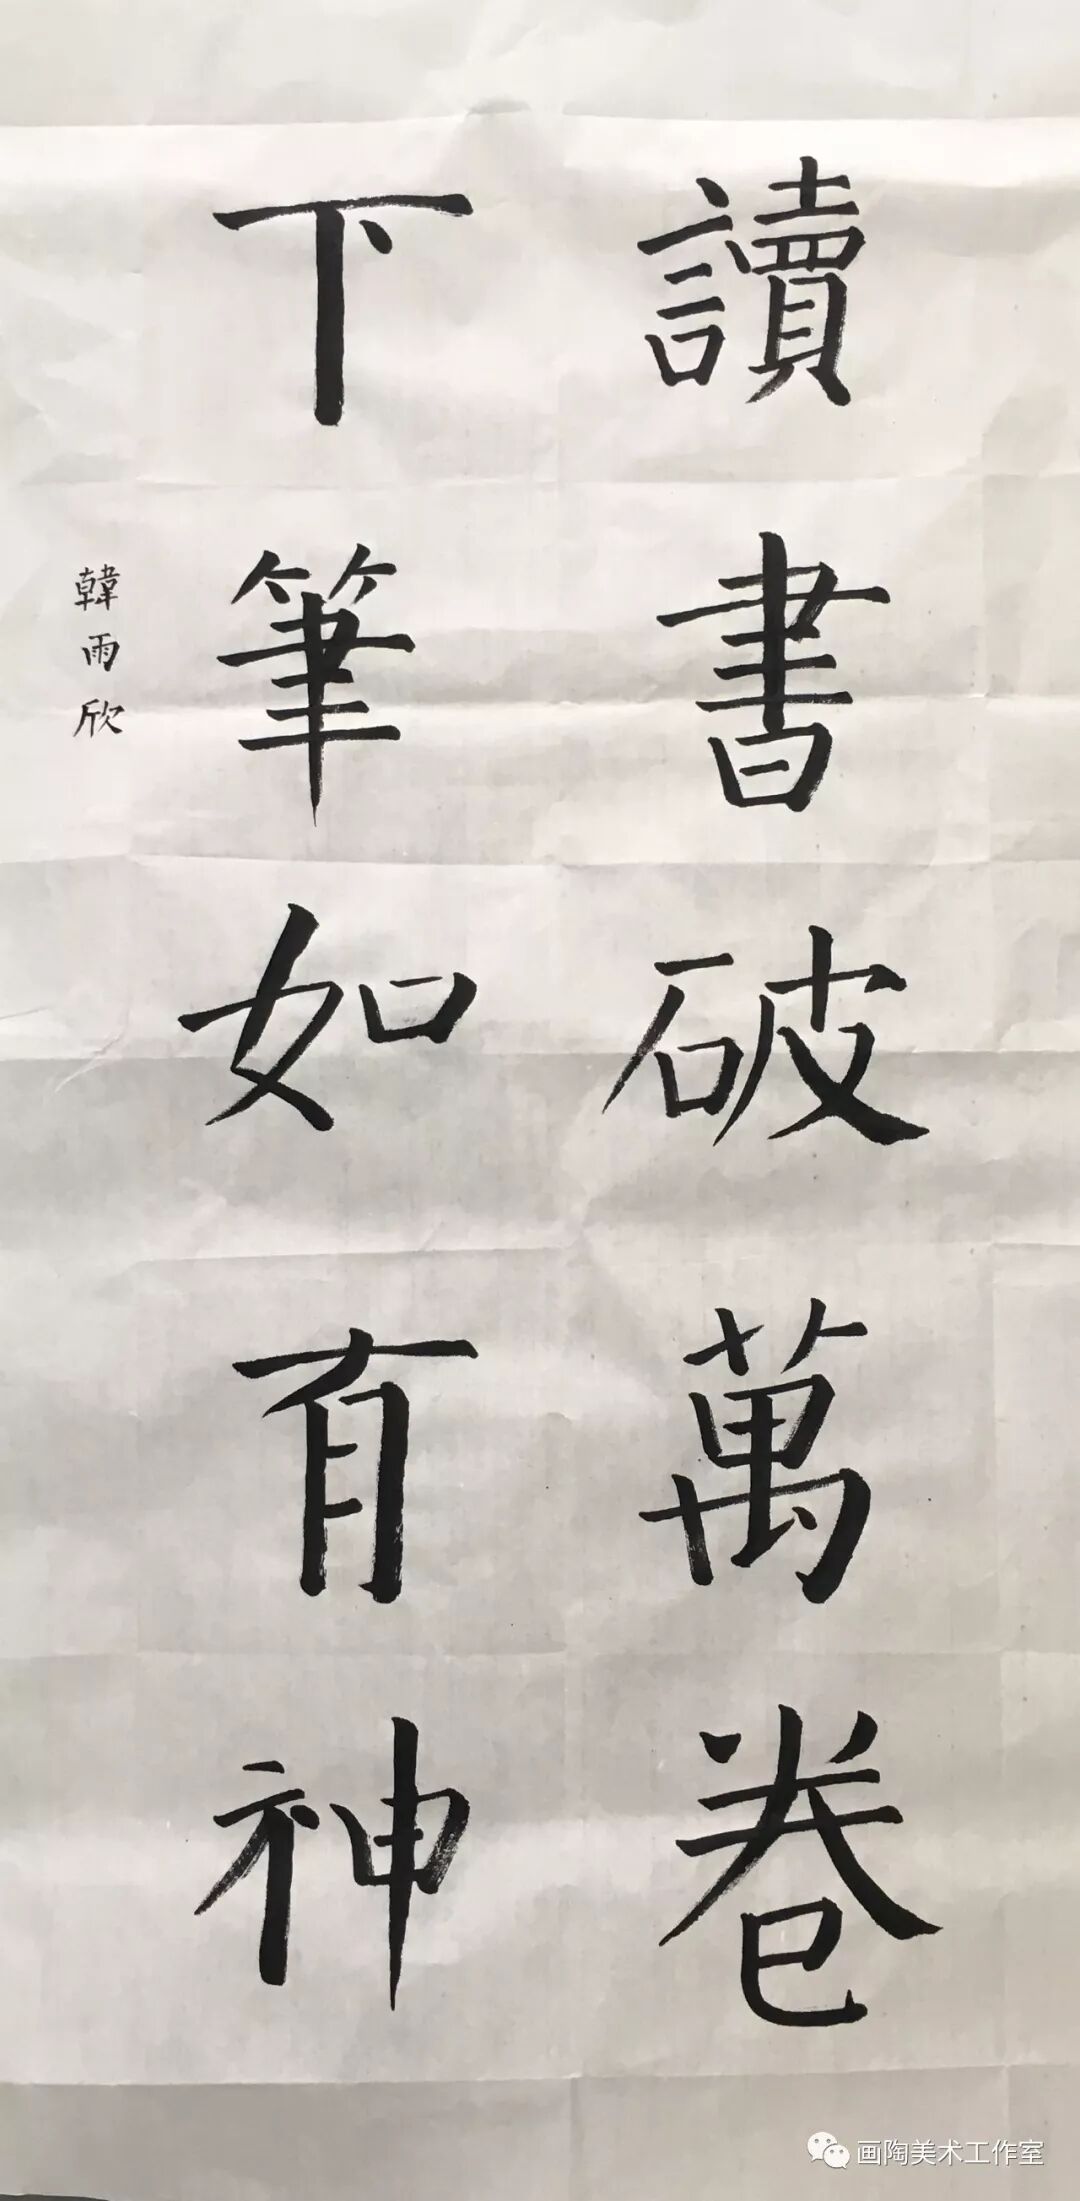 讀書破萬卷
下筆如有神
韓雨欣
画陶美术工作室